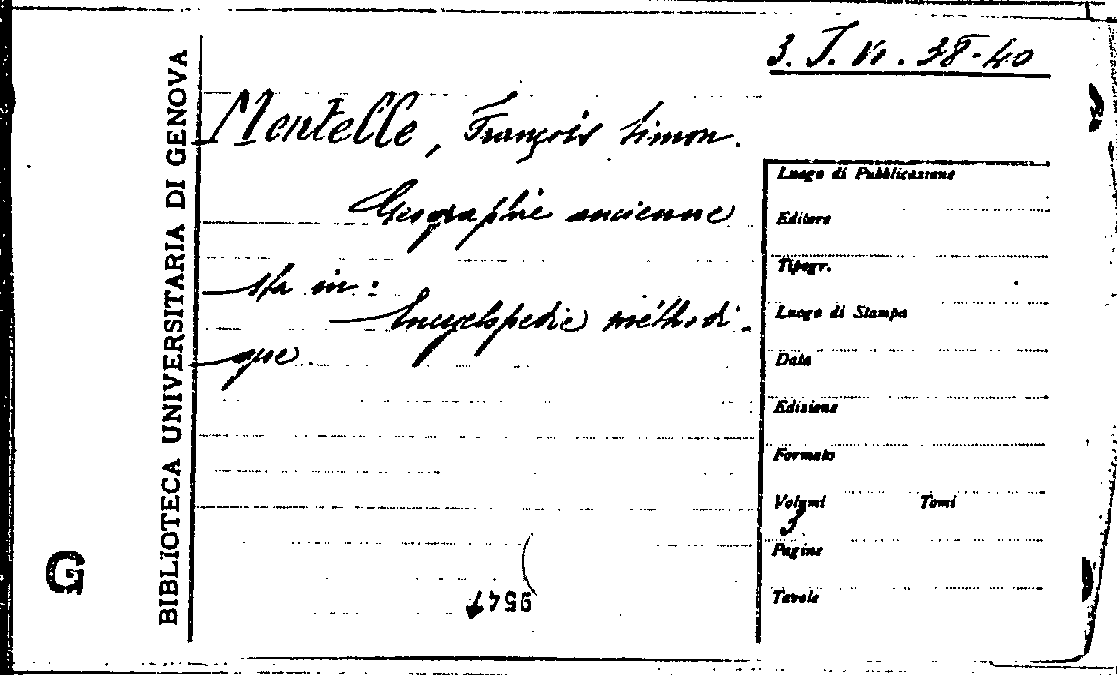 3. T. VI. 38-40
BIBLIOTECA UNIVERSITARIA DI GENOVA
Mentelle, François Simon.
Geographie ancienne
sta in:
Encyclopedie méthodi-
que.
Luogo di Pubblicazione
Editore
Tipogr.
Luogo di Stampa
Data
Edizione
Formato
Volumi Tomi
3
Pagine
Tavole
G